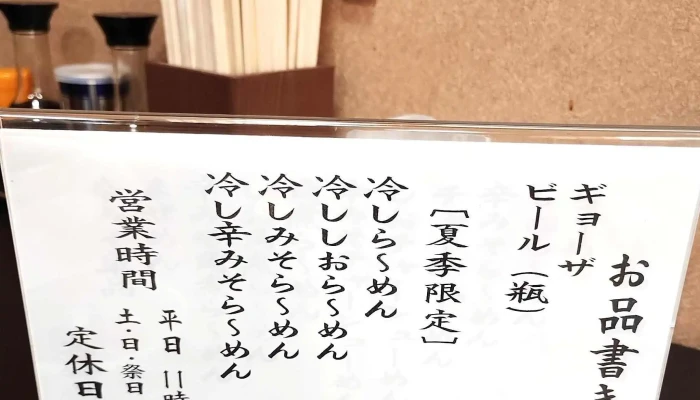 お品書き
ギョーザ
ビール（瓶）
［夏季限定］
冷しら〜めん
冷ししおら〜めん
冷しみそら〜めん
冷し辛みそら〜めん
営業時間
平日 11時
土・日・祭日
定休日